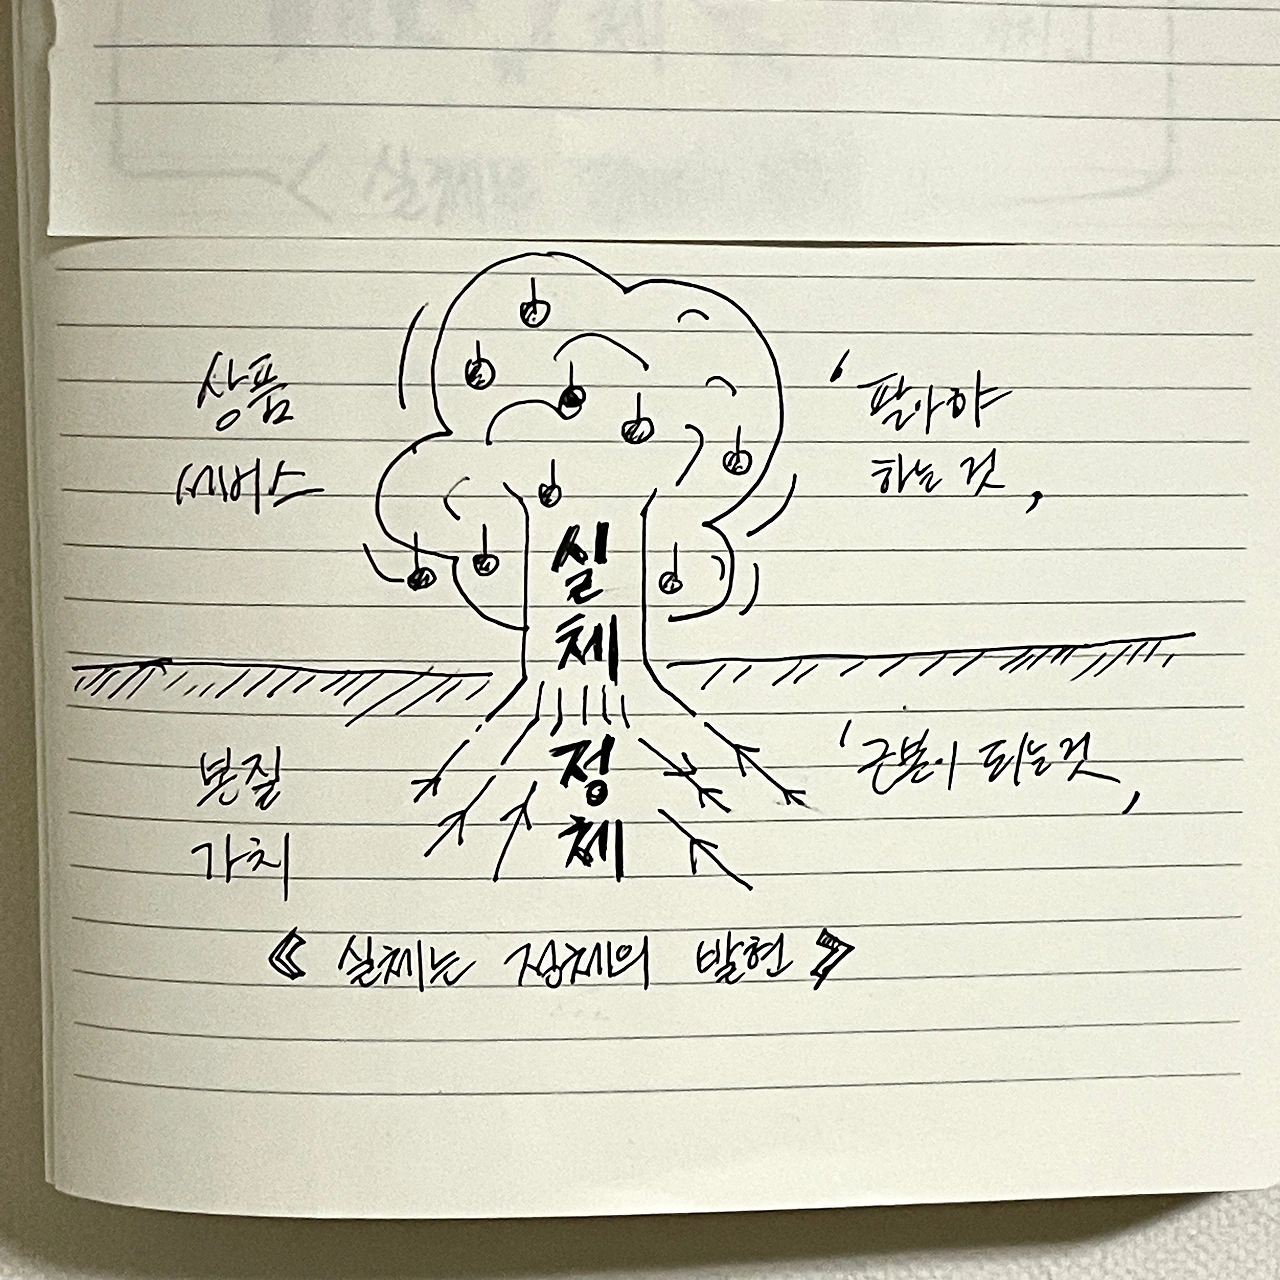 상품
서비스
'팔아야
하는 것,
실
체
본질
가치
정
체
'근본이 되는 것,
《 실체는 정체의 발현 》